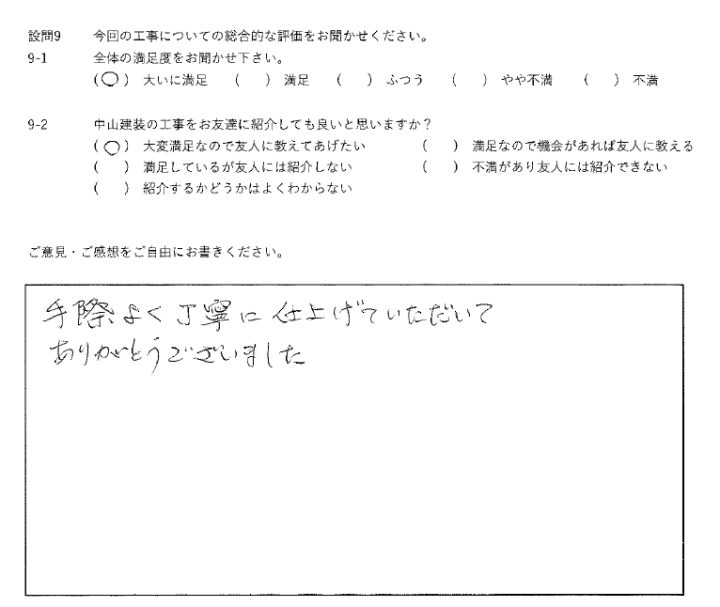 設問9　今回の工事についての総合的な評価をお聞かせください。
9-1　全体の満足度をお聞かせ下さい。
(○) 大いに満足　(　) 満足　(　) ふつう　(　) やや不満　(　) 不満
9-2　中山建装の工事をお友達に紹介しても良いと思いますか？
(○) 大変満足なので友人に教えてあげたい　(　) 満足なので機会があれば友人に教える
(　) 満足しているが友人には紹介しない　(　) 不満があり友人には紹介できない
(　) 紹介するかどうかはよくわからない
ご意見・ご感想をご自由にお書きください。
手際よく丁寧に仕上げていただいて
ありがとうございました